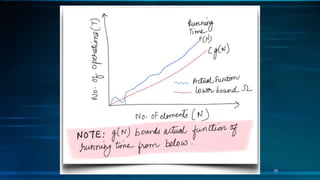 Running
Time
F(N)
C g(N)
No. of operations (T)
Actual Function
lower bound Ω
No. of elements (N)
NOTE: g(N) bounds actual function of
running time from below.